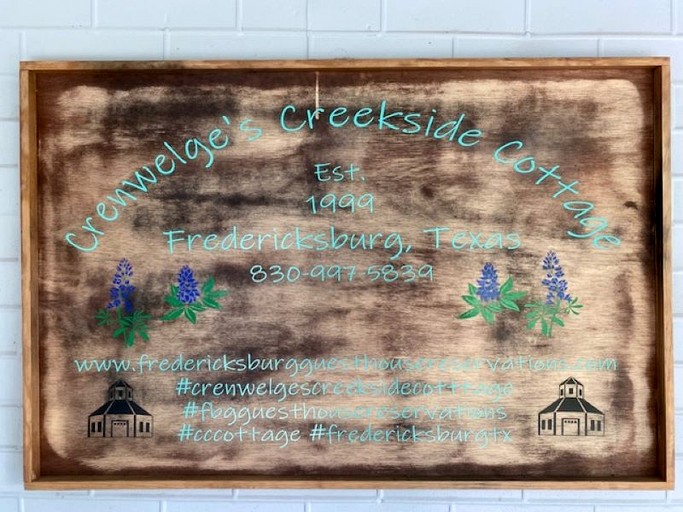 Crenwelge's Creekside Cottage
Est.
1999
Fredericksburg, Texas
830-997-5839
www.fredericksburgguesthousereservations.com
#crenwelgescreeksidecotttage
#fbgguesthousereservations
#cccottage #fredericksburgtx